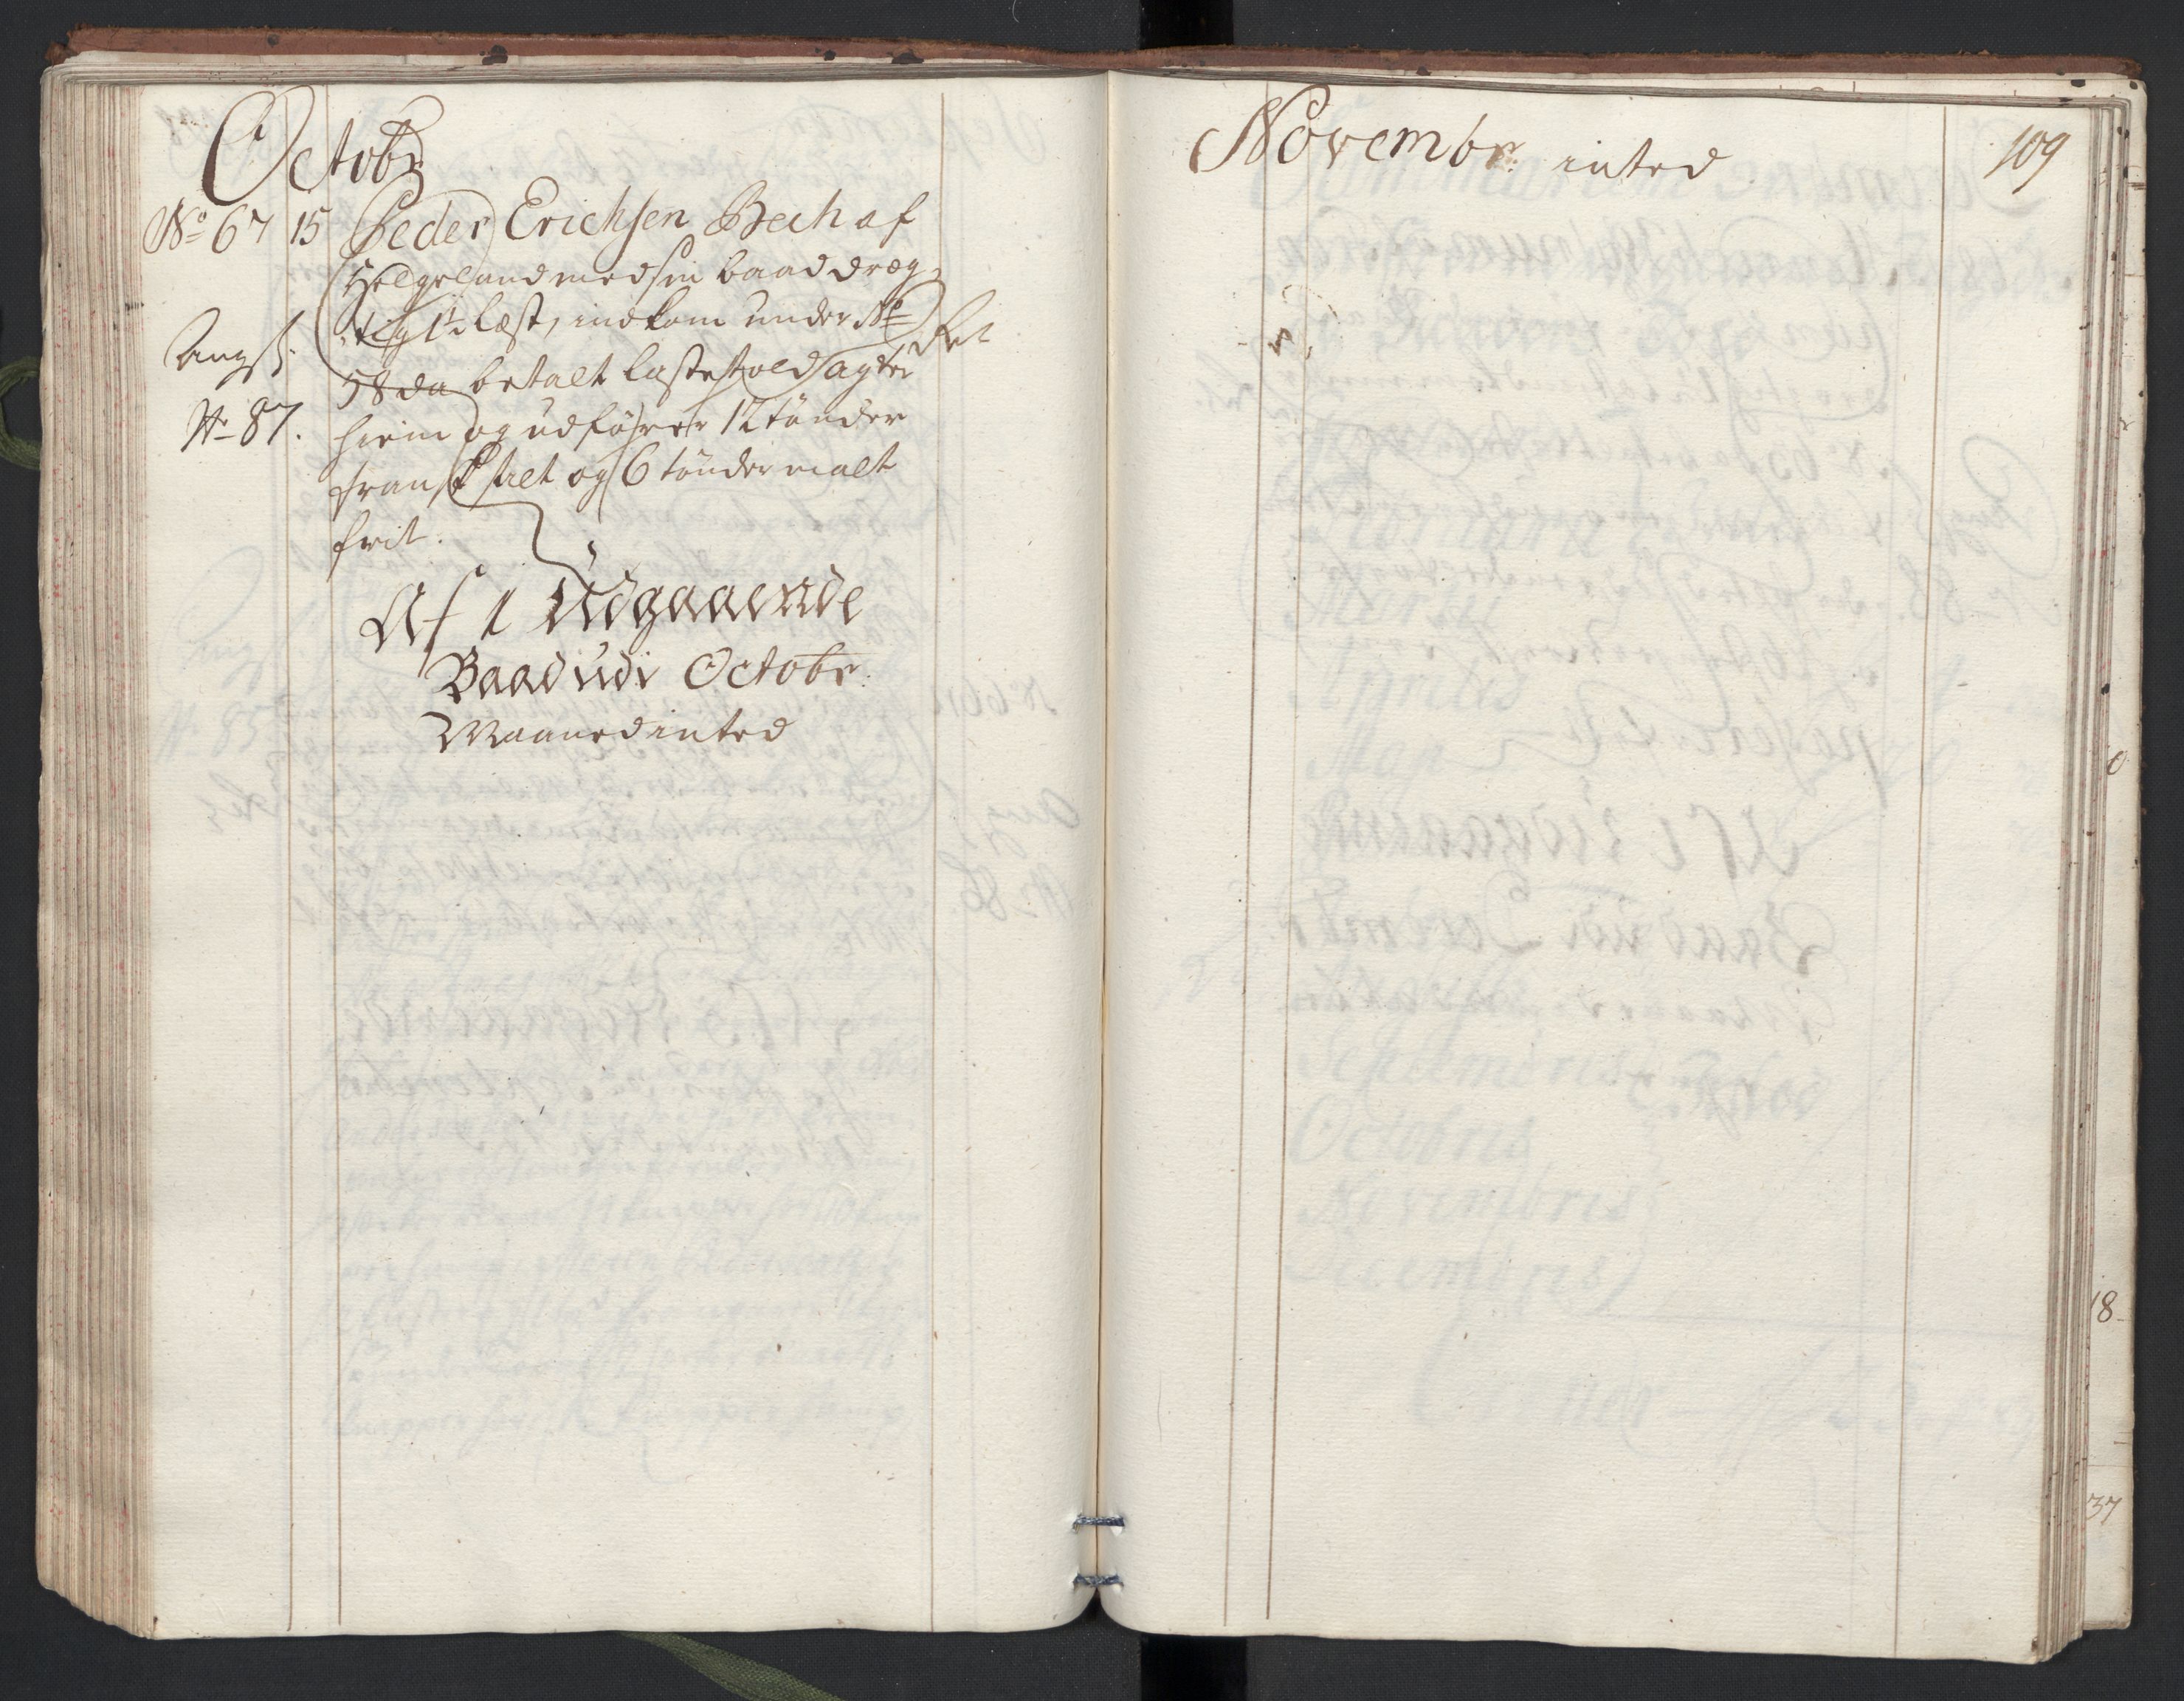 Octobr
No 67 15 Peder Erichsen Bech af
Helgeland med sin baad dræg-
tig 1½ Læst, indkom under No
58 da betalt lastetold agter
hiem og udfører 12 tønder
fransk salt og 6 tønder malt
frit.
Angf:
No 87.
Af 1 Udgaaende
Baad udi Octobr:
Maaned inted
Novembr: inted
109
18
37